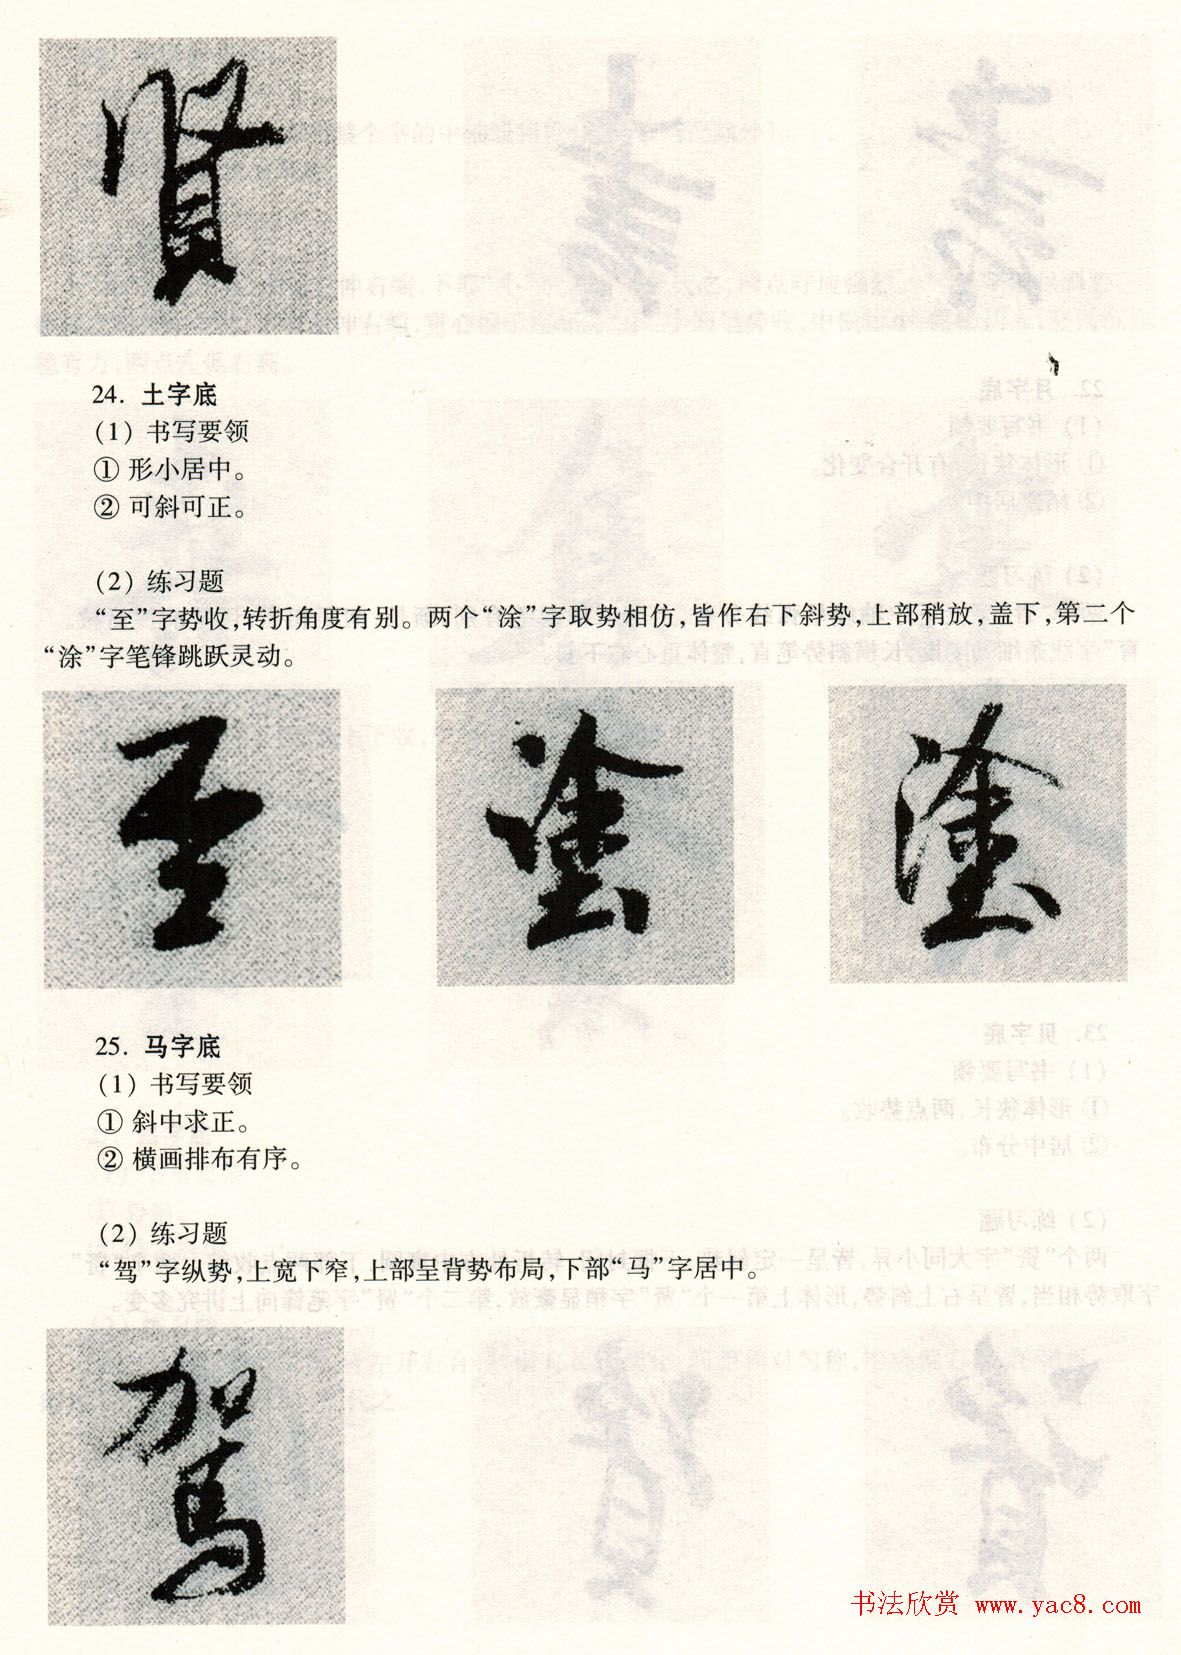 賢
24. 土字底
(1) 书写要领
① 形小居中。
② 可斜可正。
(2) 练习题
“至”字势收,转折角度有别。两个“涂”字取势相仿,皆作右下斜势,上部稍放,盖下,第二个
“涂”字笔锋跳跃灵动。
至 塗 塗
25. 马字底
(1) 书写要领
① 斜中求正。
② 横画排布有序。
(2) 练习题
“驾”字纵势,上宽下窄,上部呈背势布局,下部“马”字居中。
駕
书法欣赏 www.yac8.com